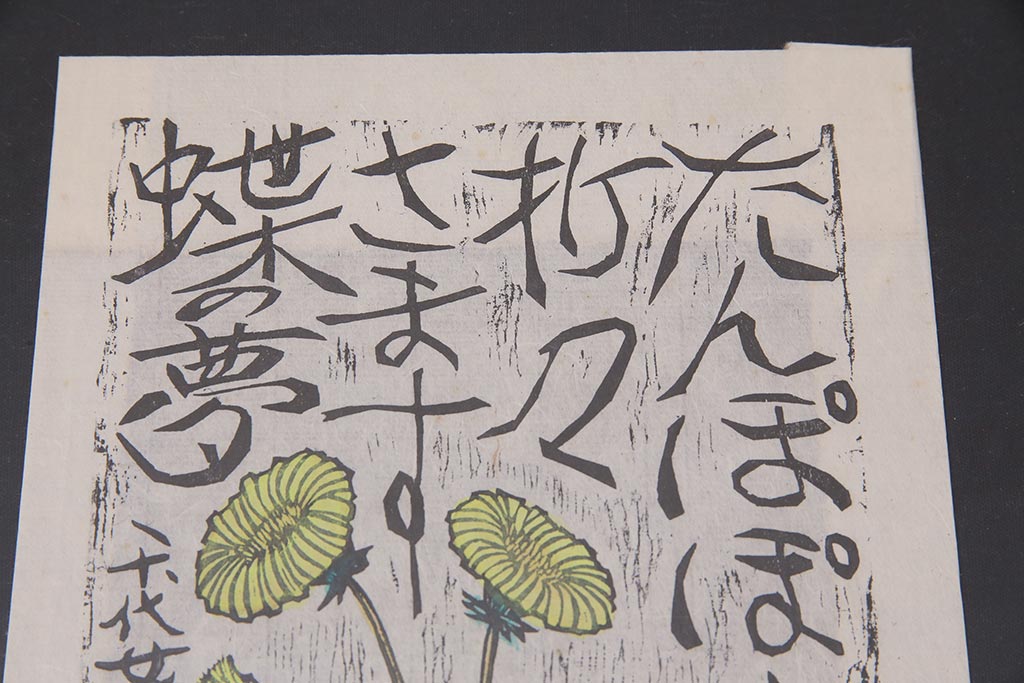 たんぽぽ
折々
さます
蝶の夢
千代女